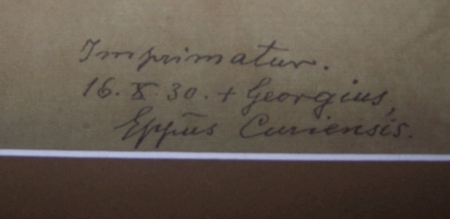 Imprimatur.
16. X. 30. + Georgius,
Epp̄us Curiensis.